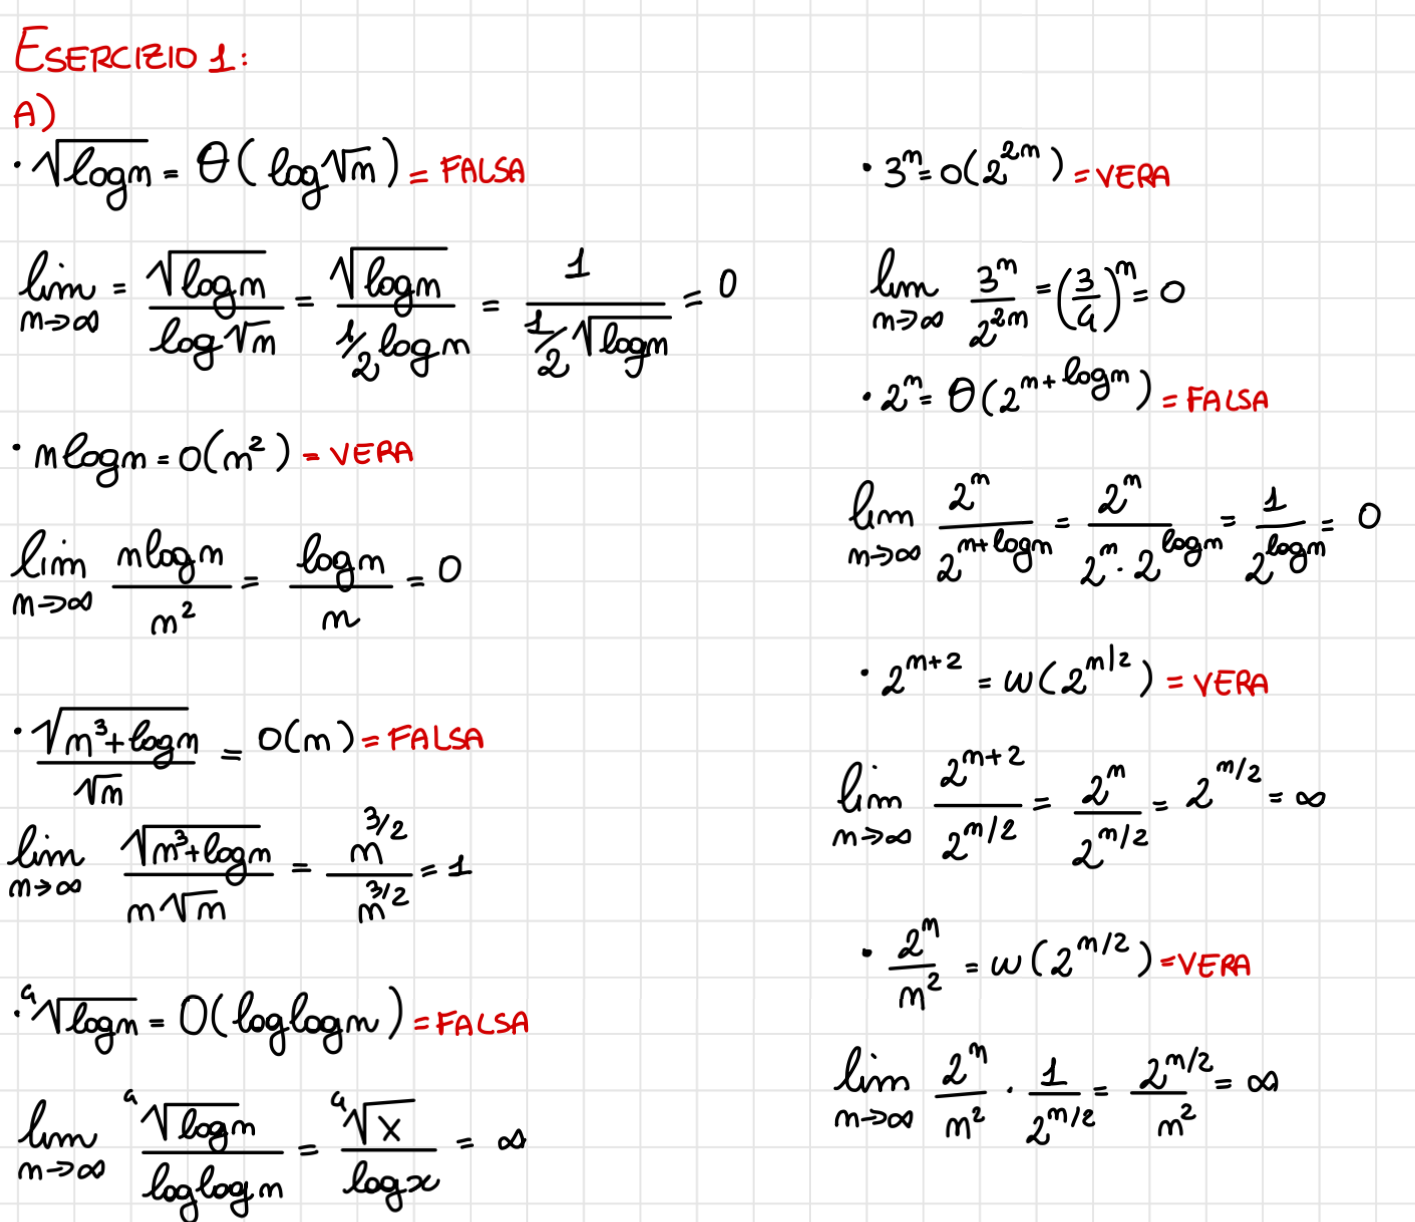 ESERCIZIO 1:
A)
· √logn = Θ(log√n) = FALSA
lim n→∞ = √logn / log√n = √logn / ½logn = 1 / ½√logn = 0
· nlogn = o(n²) = VERA
lim n→∞ nlogn / n² = logn / n = 0
· √(n³+logn) / √n = o(n) = FALSA
lim n→∞ √(n³+logn) / n√n = n^(3/2) / n^(3/2) = 1
· ⁴√logn = O(loglogn) = FALSA
lim n→∞ ⁴√logn / loglogn = ⁴√x / logx = ∞
· 3ⁿ = o(2^(2n)) = VERA
lim n→∞ 3ⁿ / 2^(2n) = (3/4)ⁿ = 0
· 2ⁿ = Θ(2^(n+logn)) = FALSA
lim n→∞ 2ⁿ / 2^(n+logn) = 2ⁿ / 2ⁿ · 2^(logn) = 1 / 2^(logn) = 0
· 2^(n+2) = ω(2^(n/2)) = VERA
lim n→∞ 2^(n+2) / 2^(n/2) = 2ⁿ / 2^(n/2) = 2^(n/2) = ∞
· 2ⁿ / n² = ω(2^(n/2)) = VERA
lim n→∞ 2ⁿ / n² · 1 / 2^(n/2) = 2^(n/2) / n² = ∞